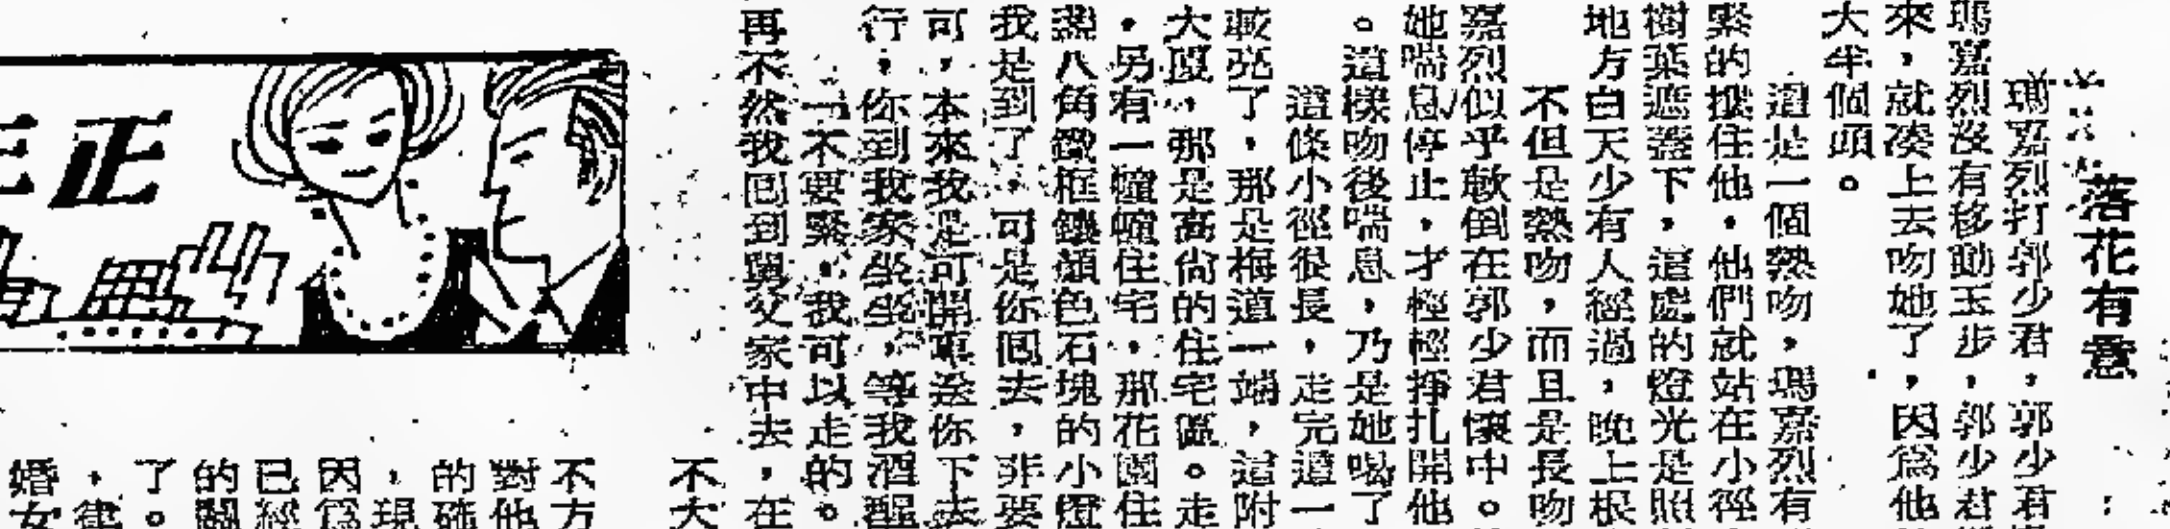 落花有意
瑪嘉烈打郭少君，郭少君
瑪嘉烈沒有移動玉步，郭少君
來，就湊上去吻她了，因為他
大半個頭。
這是一個熱吻，瑪嘉烈有
緊的摟住他，他們就站在小徑
樹葉遮蓋下，這處的燈光是照
地方白天少有人經過，晚上根
不但是熱吻，而且是長吻
嘉烈似乎軟倒在郭少君懷中。
她喘息停止，才輕輕掙扎開他
。這樣吻後喘息，乃是她喝了
這條小徑很長，走完這一
較亮了，那是梅道一端，這附
大廈，那是高尚的住宅區。走
，另有一幢幢住宅，那花園住
八角鐵框鑲顏色石塊的小燈
我是到了，可是你回去，非要
可，本來我是可開車送你下去
行，你到我家坐坐，等我酒醒
「不要緊，我可以走的。
再不然我回到舅父家中去，在
正
不大
不方
對他
的確
，現
因為
已經
的關
了。
，律
婚女